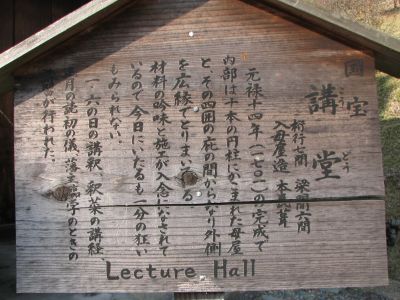 国宝
講堂
こうどう
桁行七間 梁間六間
入母屋造 本瓦葺
元禄十四年(一七〇一)の完成で
内部は十本の円柱にかこまれた母屋
と、その四囲の庇の間からなり外側
を広縁でとりまいている。
材料の吟味と施工が入念になされて
いるので今日にいたるも一分の狂い
もみられない。
一、六の日の講釈、釈菜の講経
月の読初の儀、落臨学のときの
が行われた。
Lecture Hall